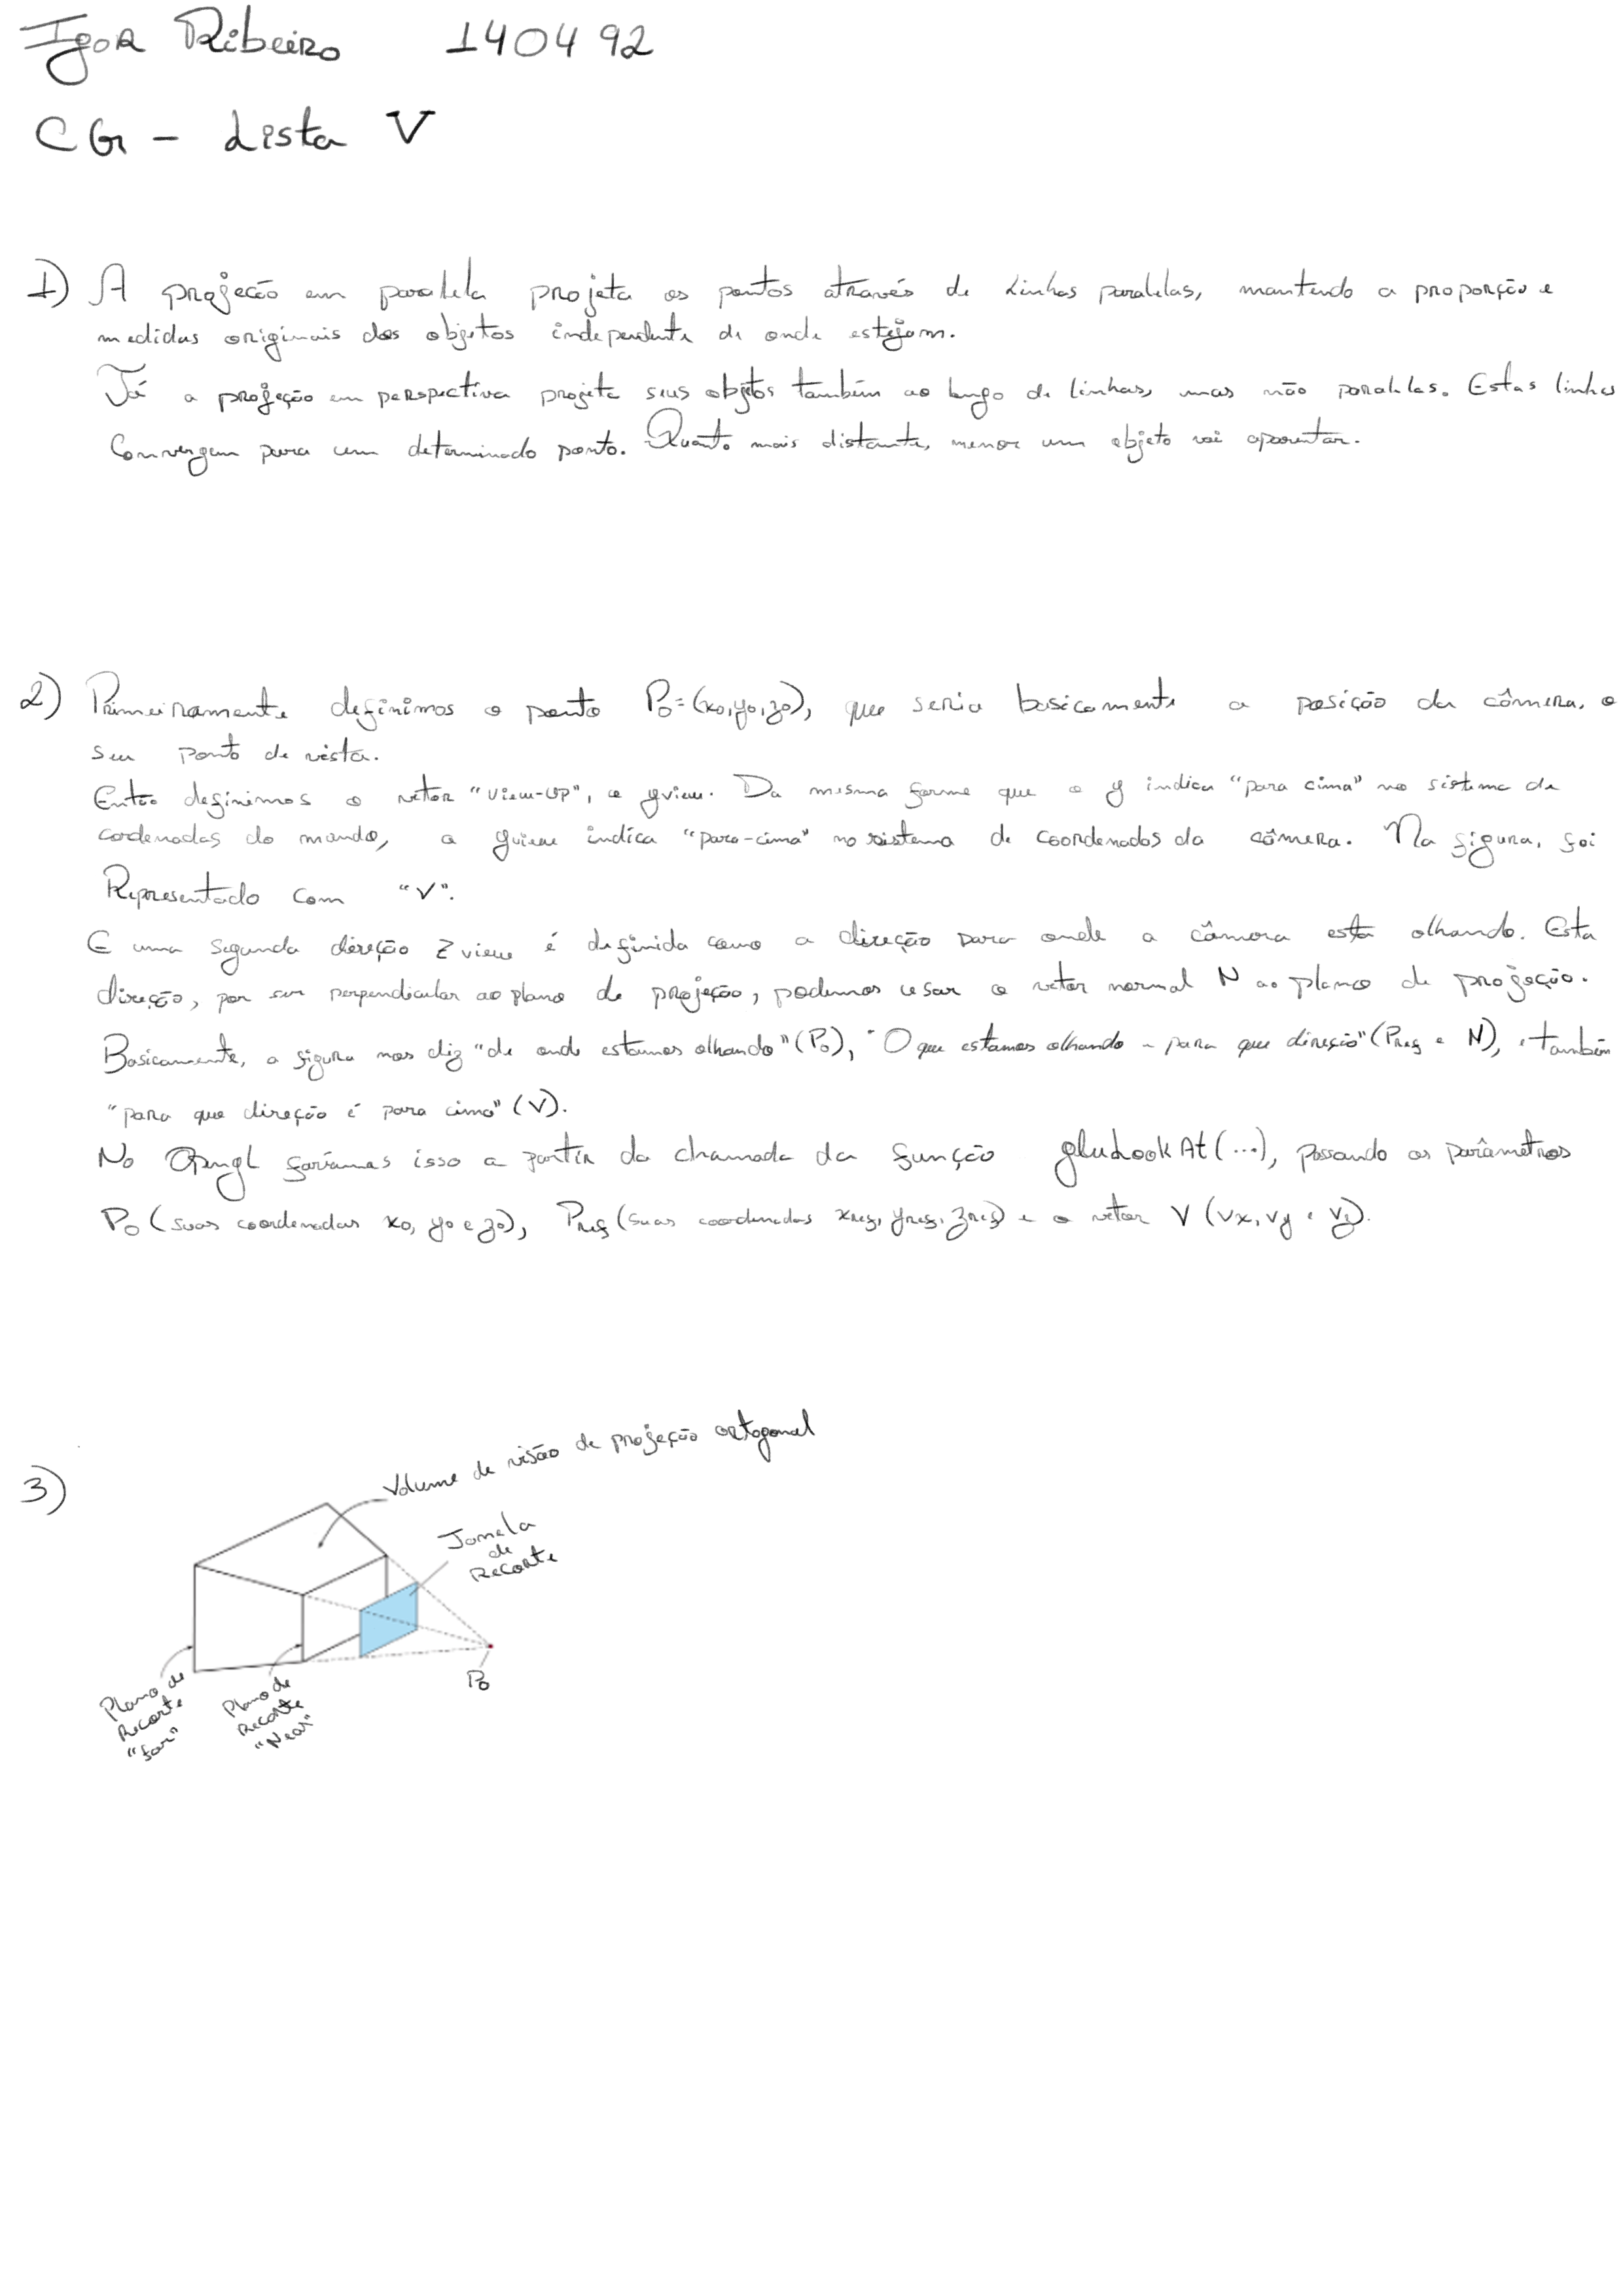 Igor Ribeiro 140492
CG - Lista V
1) A projeção em paralela projeta os pontos através de linhas paralelas, mantendo a proporção e
medidas originais dos objetos independente de onde estejam.
Já a projeção em perspectiva projeta seus objetos também ao longo de linhas, mas não paralelas. Estas linhas
Convergem para um determinado ponto. Quanto mais distante, menor um objeto vai aparentar.
2) Primeiramente definimos o ponto P0=(x0,y0,z0), que seria basicamente a posição da câmera, o
seu ponto de vista.
Então definimos o vetor "view-up", o yview. Da mesma forma que o y indica "para cima" no sistema de
cordenadas do mundo, o yview indica "para-cima" no sistema de coordenadas da câmera. Na figura, foi
Representado com "V".
E uma segunda direção zview é definida como a direção para onde a câmera está olhando. Esta
direção, por ser perpendicular ao plano de projeção, podemos usar o vetor normal N ao plano de projeção.
Basicamente, a figura nos diz "de onde estamos olhando" (P0), "O que estamos olhando - para que direção" (Pref e N), e também
"para que direção é para cima" (V).
No OpenGL faríamos isso a partir da chamada da função gluLookAt(...), passando os parâmetros
P0 (suas coordenadas x0, y0 e z0), Pref (suas coordenadas xref, yref, zref) e o vetor V (vx, vy e vz).
3)
Volume de visão de projeção ortogonal
Janela
de
Recorte
P0
Plano de
Recorte
"far"
Plano de
Recorte
"Near"